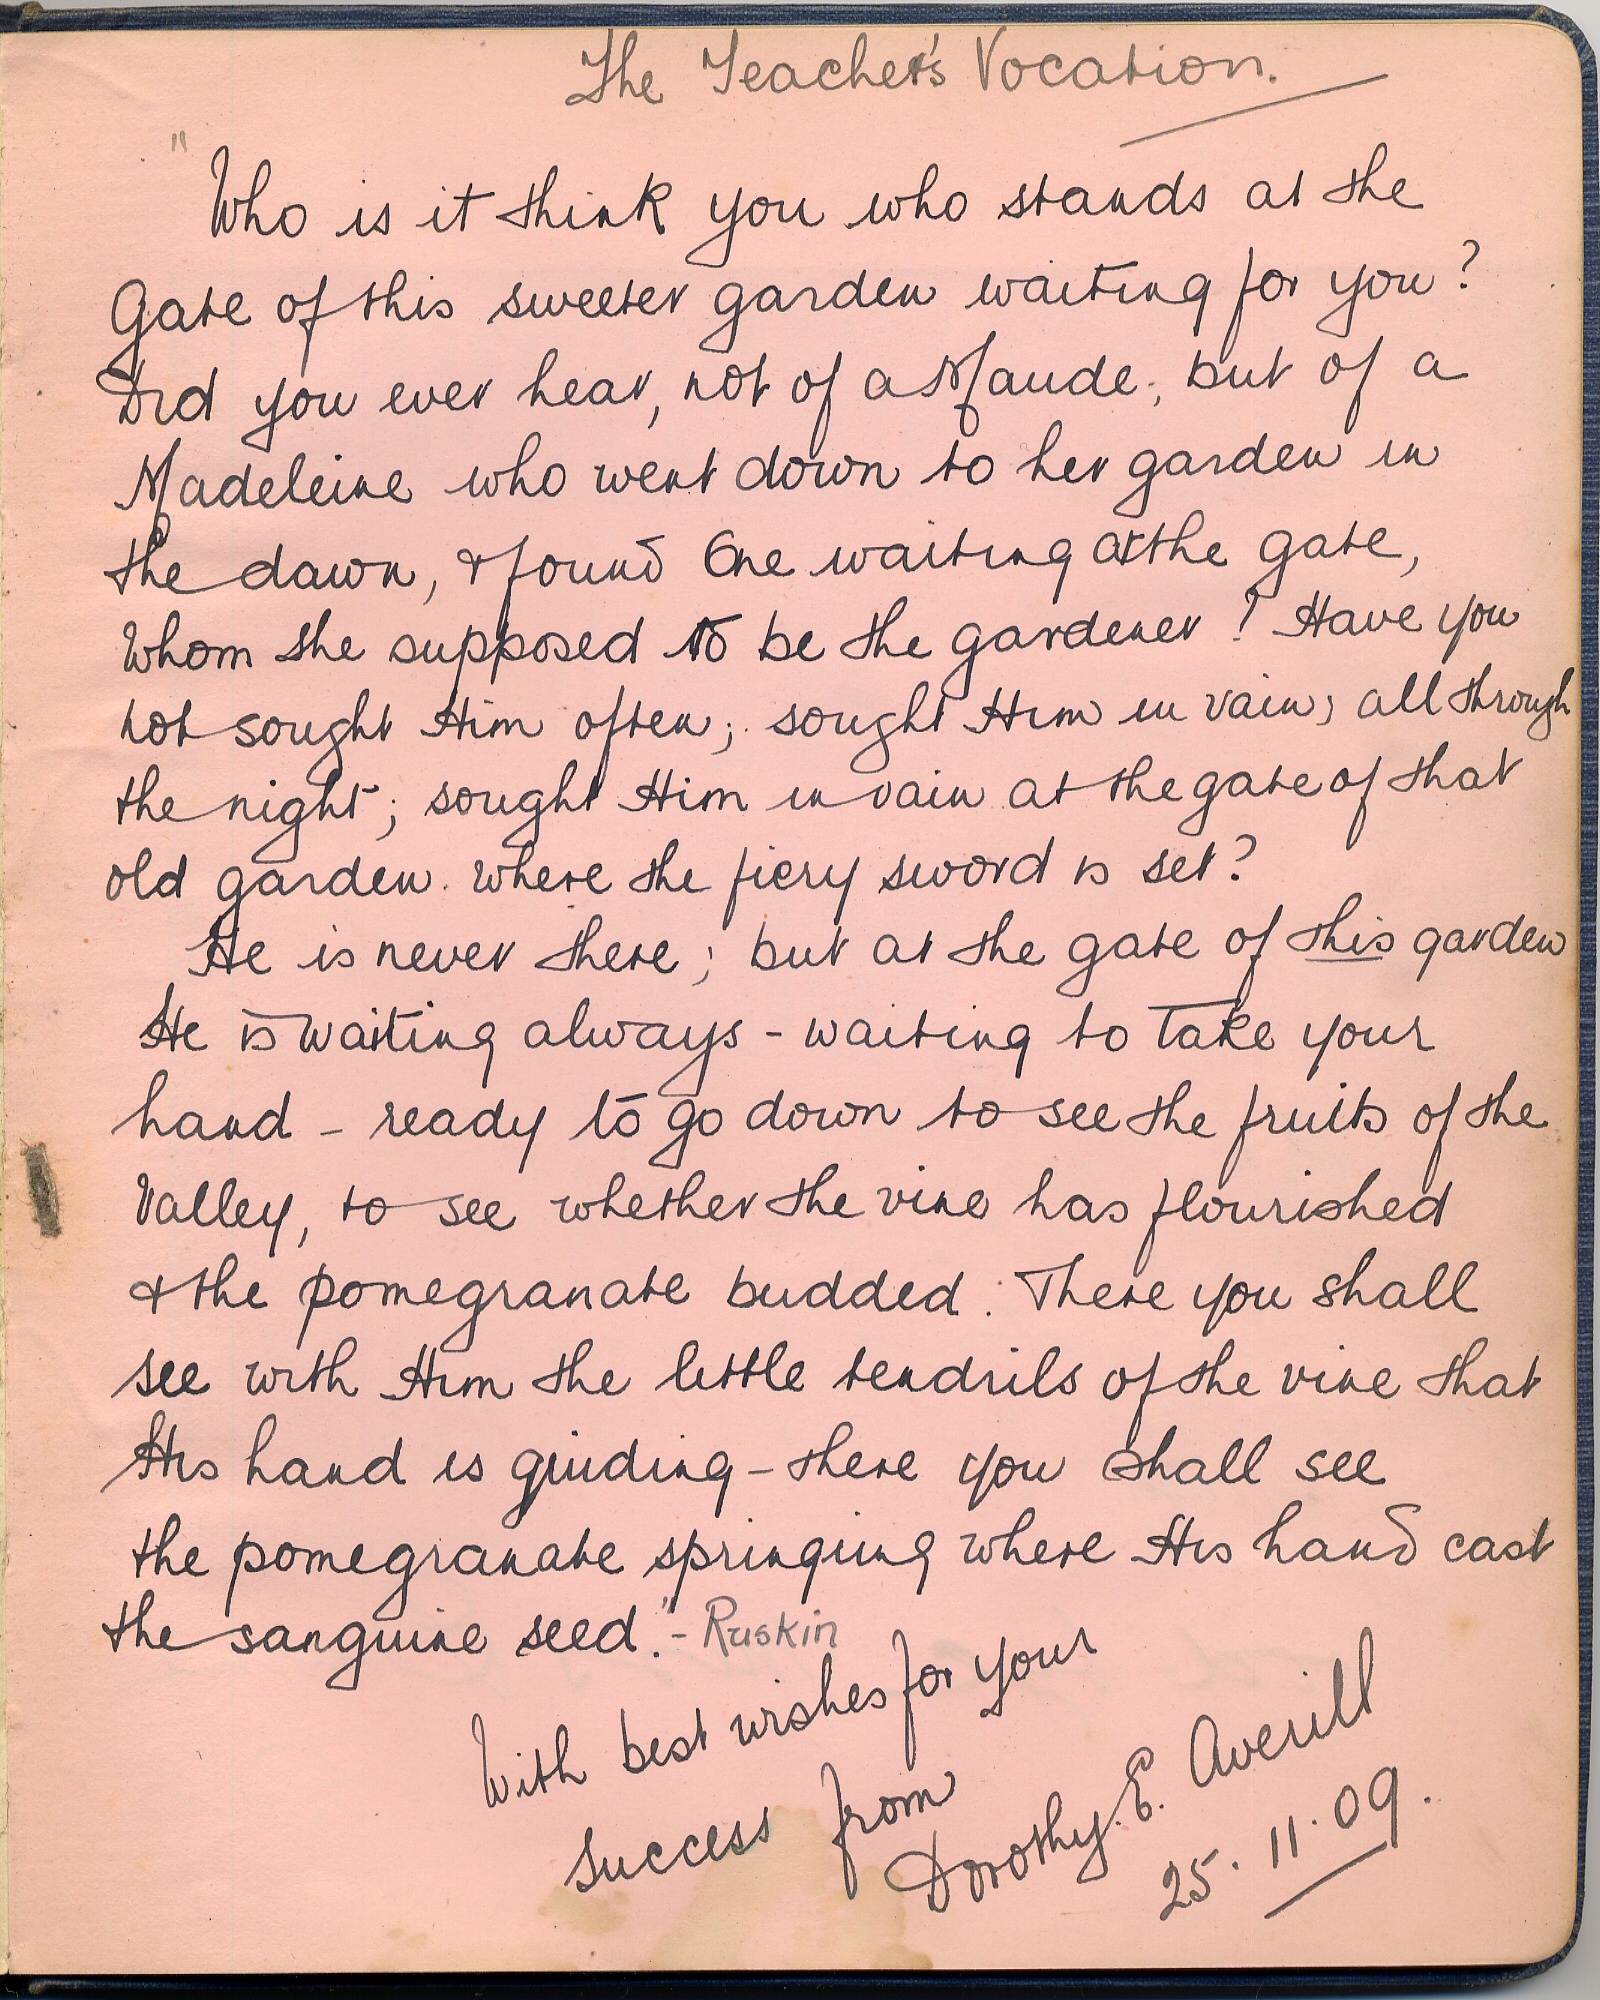 The Teacher's Vocation.
"Who is it think you who stands at the
Gate of this sweeter garden waiting for you?
Did you ever hear, not of a Maude; but of a
Madeleine who went down to her garden in
the dawn, & found One waiting at the gate,
Whom she supposed to be the gardener? Have you
not sought Him often; sought Him in vain; all through
the night; sought Him in vain at the gate of that
old garden where the fiery sword is set?
He is never there; but at the gate of this garden
He is waiting always - waiting to take your
hand - ready to go down to see the fruits of the
Valley, to see whether the vine has flourished
& the pomegranate budded. There you shall
see with Him the little tendrils of the vine that
His hand is guiding - there you shall see
the pomegranate springing where His hand cast
the sanguine seed." - Ruskin
With best wishes for your
success from
Dorothy. E. Averill
25. 11. 09.